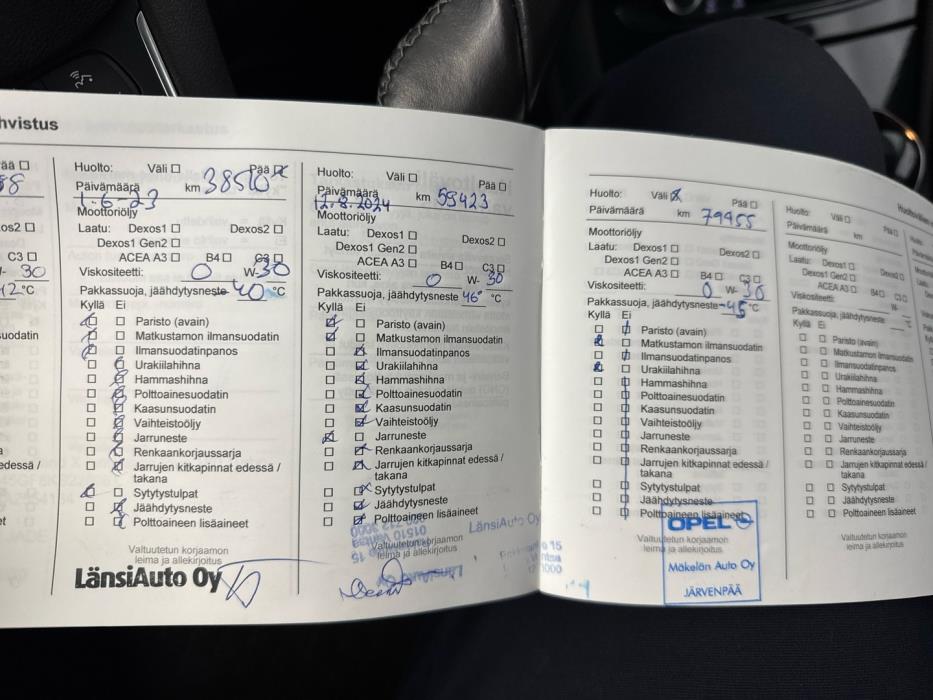 hvistus
ää ☐
os2 ☐
C3 ☐
W- 30
42 °C
uodatin
edessä /
Huolto: Väli ☐ Pää ☒
Päivämäärä 1.6-23 km 38510
Moottoriöljy
Laatu: Dexos1 ☐ Dexos2 ☐
Dexos1 Gen2 ☐
ACEA A3 ☐ B4 ☐ C3 ☒
Viskositeetti: 0 W-30
Pakkassuoja, jäähdytysneste -40 °C
Kyllä Ei
☒ ☐ Paristo (avain)
☒ ☐ Matkustamon ilmansuodatin
☒ ☐ Ilmansuodatinpanos
☐ ☒ Urakiilahihna
☐ ☒ Hammashihna
☐ ☒ Polttoainesuodatin
☐ ☒ Kaasunsuodatin
☐ ☒ Vaihteistoöljy
☐ ☒ Jarruneste
☐ ☒ Renkaankorjaussarja
☐ ☒ Jarrujen kitkapinnat edessä /
takana
☒ ☐ Sytytystulpat
☐ ☒ Jäähdytysneste
☐ ☒ Polttoaineen lisäaineet
Valtuutetun korjaamon
leima ja allekirjoitus
LänsiAuto Oy
Huolto: Väli ☐ Pää ☐
Päivämäärä 12.8.2024 km 59423
Moottoriöljy
Laatu: Dexos1 ☐ Dexos2 ☐
Dexos1 Gen2 ☐
ACEA A3 ☐ B4 ☐ C3 ☒
Viskositeetti: 0 W- 30
Pakkassuoja, jäähdytysneste 46° °C
Kyllä Ei
☒ ☐ Paristo (avain)
☒ ☐ Matkustamon ilmansuodatin
☐ ☒ Ilmansuodatinpanos
☐ ☒ Urakiilahihna
☐ ☒ Hammashihna
☐ ☒ Polttoainesuodatin
☐ ☒ Kaasunsuodatin
☐ ☒ Vaihteistoöljy
☒ ☐ Jarruneste
☐ ☒ Renkaankorjaussarja
☐ ☒ Jarrujen kitkapinnat edessä /
takana
☐ ☒ Sytytystulpat
☐ ☒ Jäähdytysneste
☐ ☒ Polttoaineen lisäaineet
LänsiAuto Oy
01510
Valtuutetun korjaamon
leima ja allekirjoitus
LänsiAuto Oy
Huolto: Väli ☒ Pää ☐
Päivämäärä km 79455
Moottoriöljy
Laatu: Dexos1 ☐ Dexos2 ☐
Dexos1 Gen2 ☐
ACEA A3 ☐ B4 ☐ C3 ☒
Viskositeetti: 0 W- 30
Pakkassuoja, jäähdytysneste -45 °C
Kyllä Ei
☐ ☒ Paristo (avain)
☒ ☐ Matkustamon ilmansuodatin
☐ ☒ Ilmansuodatinpanos
☒ ☐ Urakiilahihna
☐ ☒ Hammashihna
☐ ☒ Polttoainesuodatin
☐ ☒ Kaasunsuodatin
☐ ☒ Vaihteistoöljy
☐ ☒ Jarruneste
☐ ☒ Renkaankorjaussarja
☐ ☒ Jarrujen kitkapinnat edessä /
takana
☐ ☒ Sytytystulpat
☐ ☒ Jäähdytysneste
☐ ☒ Polttoaineen lisäaineet
OPEL
Valtuutetun korjaamon
leima ja allekirjoitus
Mäkelän Auto Oy
JÄRVENPÄÄ
Huolto: Väli ☐ Pää ☐
Päivämäärä km
Moottoriöljy
Laatu: Dexos1 ☐ Dexos2 ☐
Dexos1 Gen2 ☐
ACEA A3 ☐ B4 ☐ C3 ☐
Viskositeetti: W-
Pakkassuoja, jäähdytysneste °C
Kyllä Ei
☐ ☐ Paristo (avain)
☐ ☐ Matkustamon ilmansuodatin
☐ ☐ Ilmansuodatinpanos
☐ ☐ Urakiilahihna
☐ ☐ Hammashihna
☐ ☐ Polttoainesuodatin
☐ ☐ Kaasunsuodatin
☐ ☐ Vaihteistoöljy
☐ ☐ Jarruneste
☐ ☐ Renkaankorjaussarja
☐ ☐ Jarrujen kitkapinnat edessä /
takana
☐ ☐ Sytytystulpat
☐ ☐ Jäähdytysneste
☐ ☐ Polttoaineen lisäaineet
Valtuutetun korjaamon
leima ja allekirjoitus